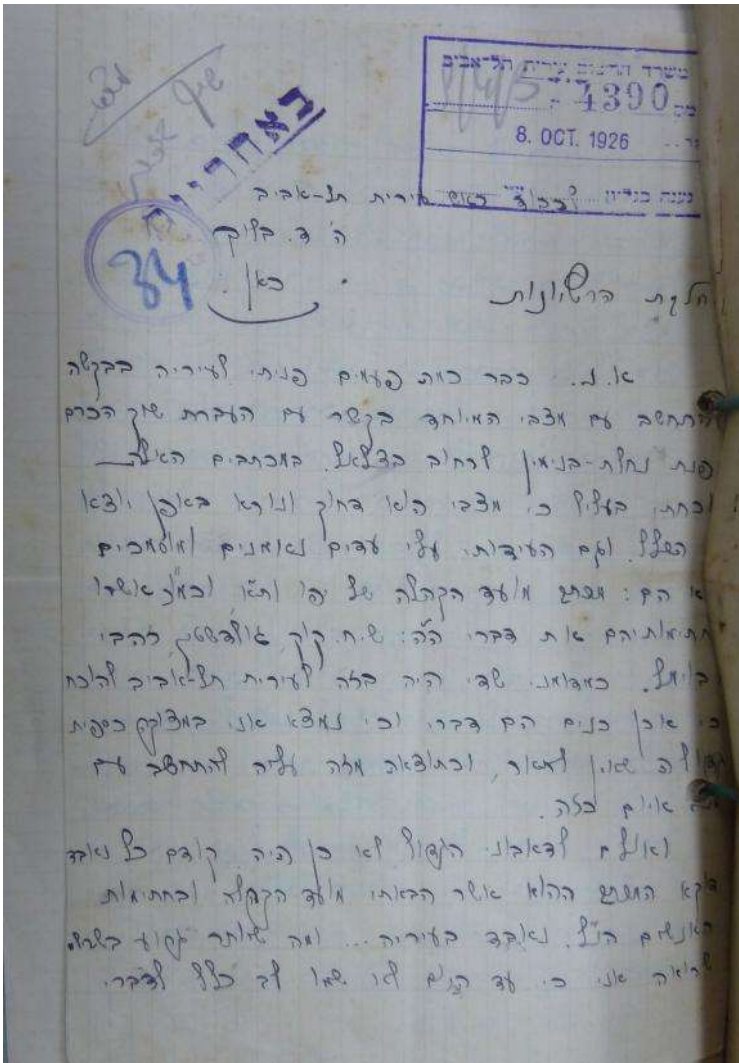 משרד הרשום עירית תל-אביב
מס 4390
8. OCT. 1926
נענה בנדון
באחריות
34
לכבוד ראש עירית תל-אביב
ה' ד. בלוך
כאן.
מחלקת הרשיונות
א.נ. כבר כמה פעמים פניתי לעיריה בבקשה
להתחשב עם מצבי המיוחד בקשר עם העברת שוק הכרם
פנת נחלת-בנימין לרחוב בצלאל. במכתבים האלו
הוכחתי בעליל כי מצבי הוא דחוק ונורא באופן יוצא
מהכלל. וגם העידותי עלי עדים נאמנים ומוסמכים
מועד הקהלה של יפו ות״א
חתימותיהם את דברי ה״ה: ש. ח. קוק, גולדשטין
כמדומני שדי היה בזה לעירית תל-אביב להוכח
כי אכן כנים הם דברי וכי נמצא אני במצוקה כספית
גדולה שאין לתאור, וכתוצאה מזה עליה להתחשב עם
איום כזה.
ואולם לדאבוני הגדול לא כן היה קודם כל נאבד
דוקא המכתב ההוא אשר הבאתי מועד הקהלה ובחתימות
האנשים הנ״ל. נאבד בעיריה... ומה שיותר
שרואה אני כי עד היום לא שמו לב כלל לדברי